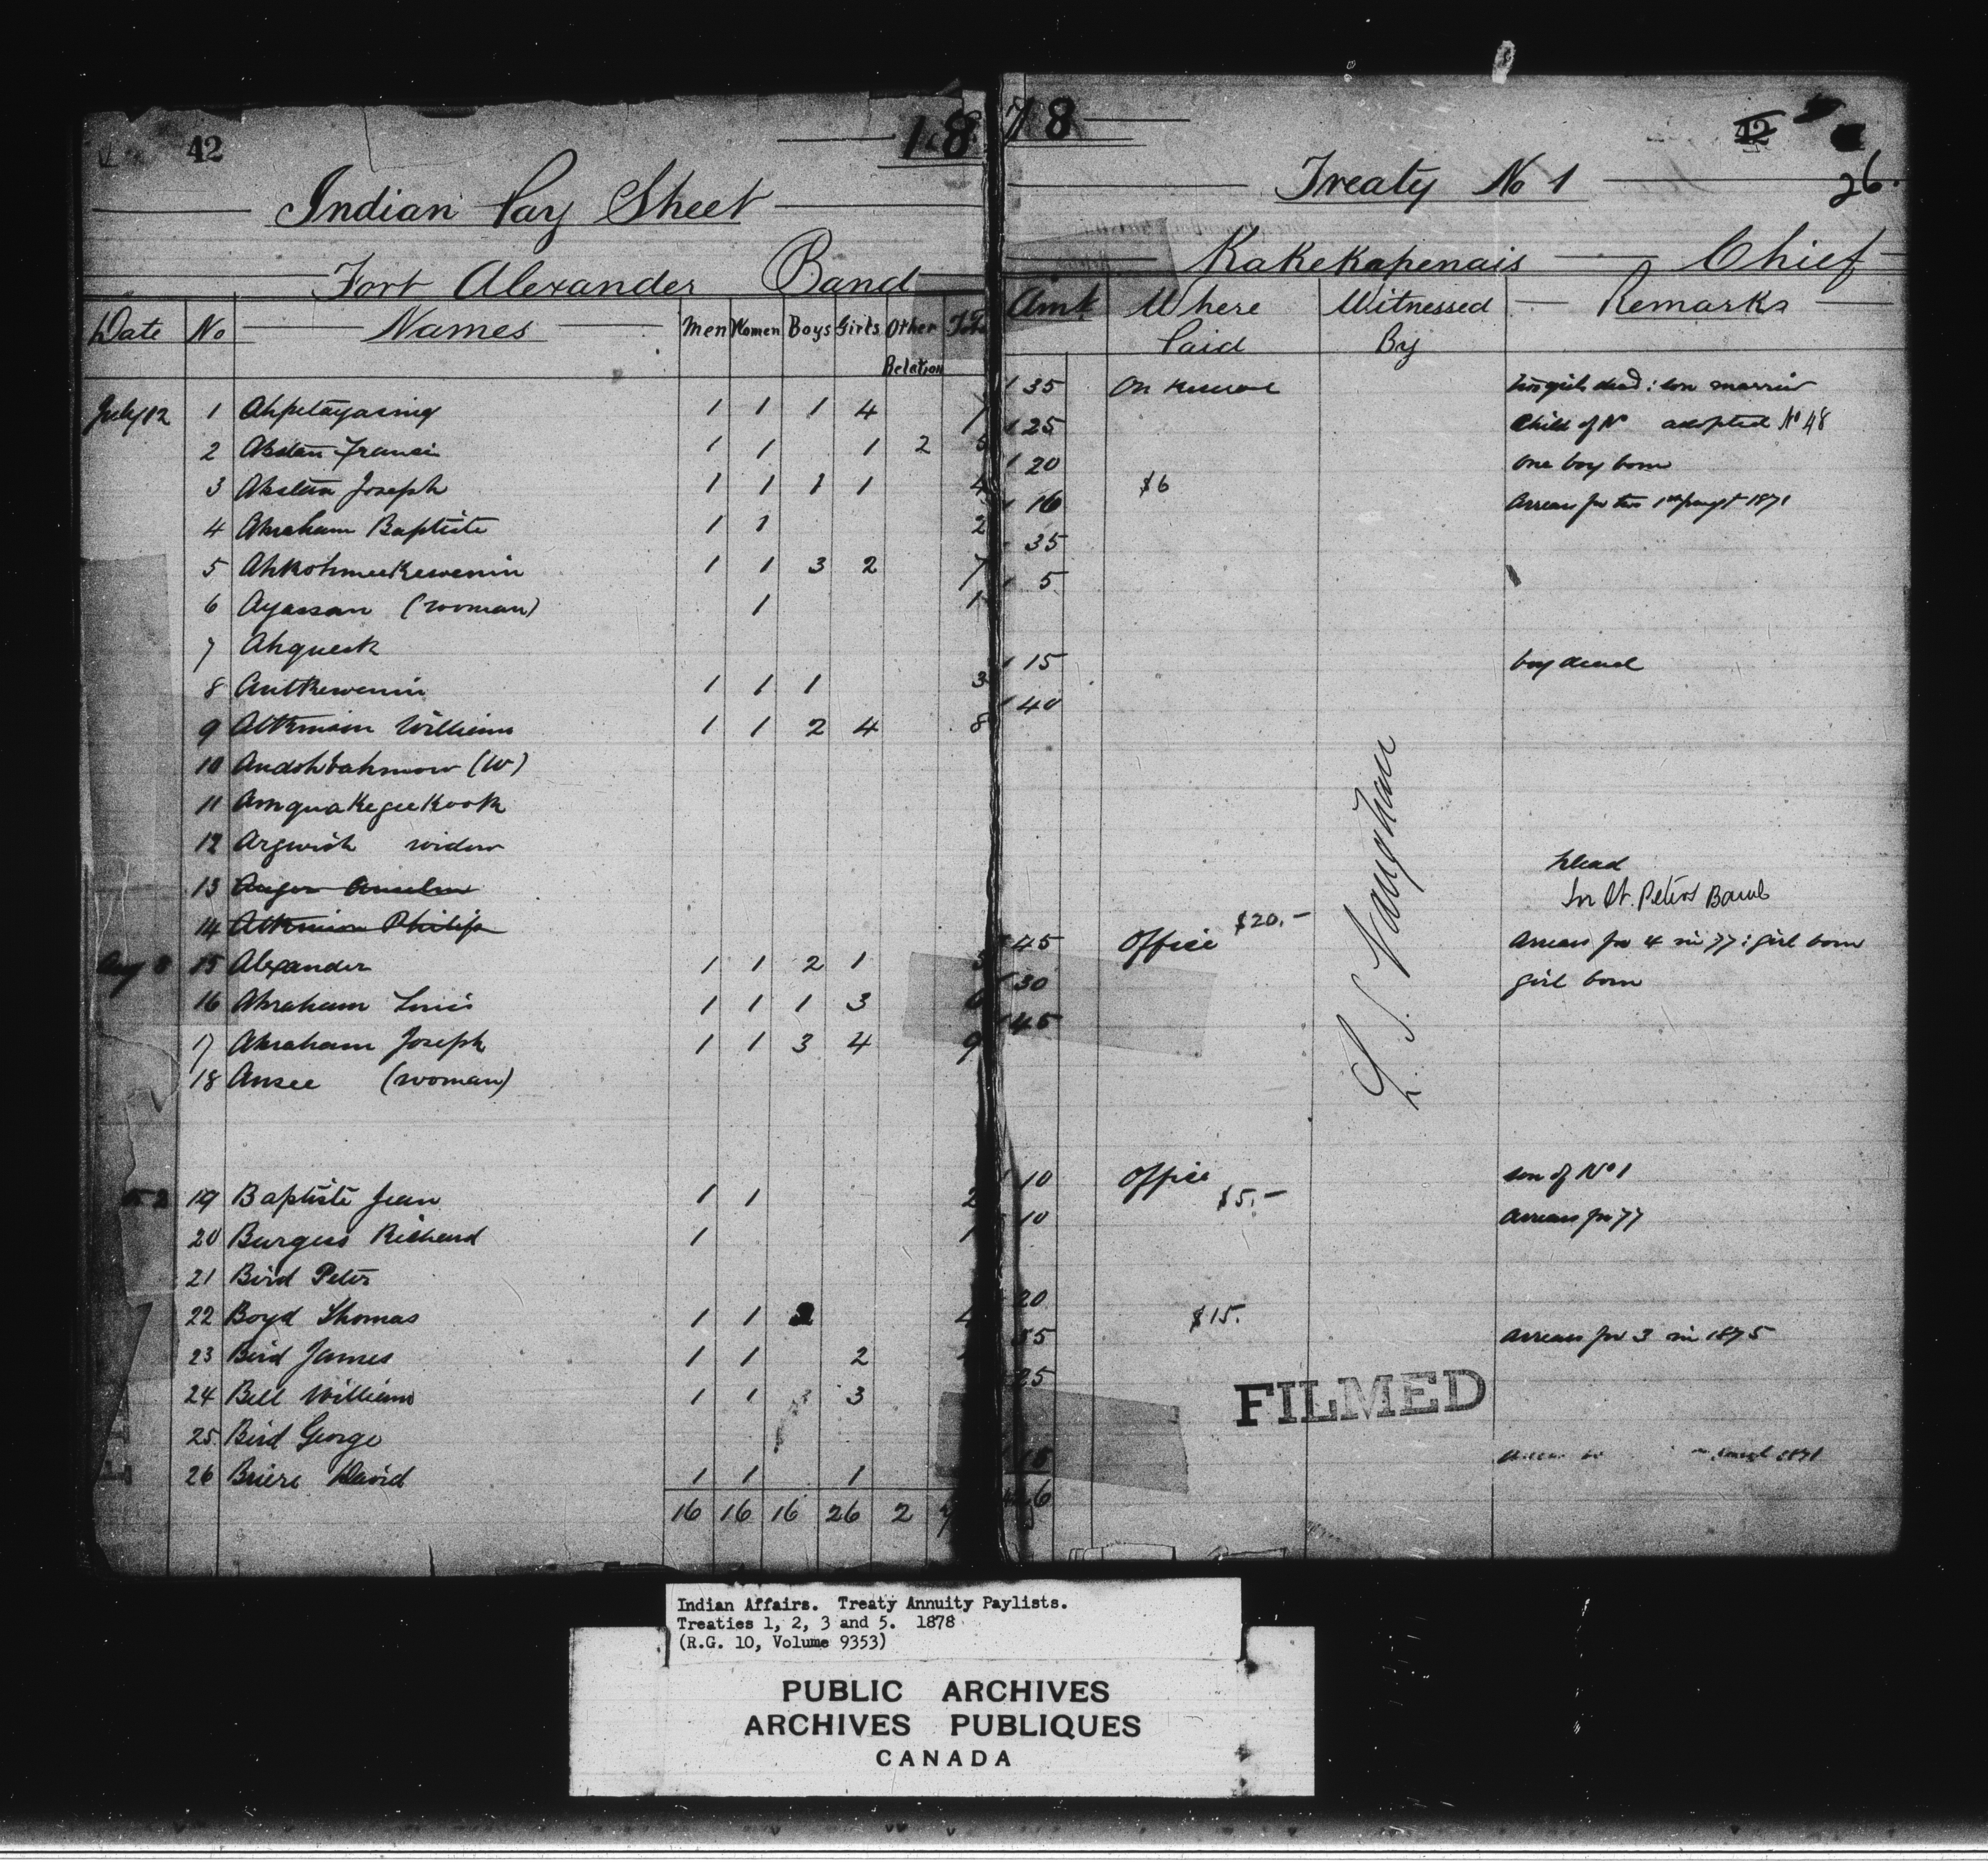 42 1878 42
26.
Indian Pay Sheet Treaty No 1
Fort Alexander Band Kakekapenais Chief
Date No Names Men Women Boys Girls Other Relation Amt Where Paid Witnessed By Remarks
July 12 1 Ahpetayasing 1 1 1 4 7 35 On Reserve two girls dead : son married
2 1 1 1 2 5 25 Child of No adopted No 48
3 Joseph 1 1 1 1 4 20 One boy born
4 Abraham Baptiste 1 1 2 16 $6 Arrears for two 1871
5 1 1 3 2 7 35
6 Ayassan (woman) 1 1 5
7 Ahqueck
8 1 1 1 3 15 boy dead
9 Atkinson William 1 1 2 4 8 40
10 (W)
11 Amquakegeekook
12 Argwish widow
13 Auger Anselm Dead
14 Atkinson Philip In St. Peters Band
Aug 8 15 Alexander 1 1 2 1 5 45 Office $20.- Arrears for 4 in 77 : girl born
16 Abraham Louis 1 1 1 3 6 30 girl born
17 Abraham Joseph 1 1 3 4 9 45
18 Ansee (woman)
19 Baptiste Jean 1 1 2 10 Office son of No 1
20 Burgess Richard 1 1 10 $5.- Arrears for 77
21 Bird Peter
22 Boyd Thomas 1 1 2 4 20
23 Bird James 1 1 2 $15. Arrears for 3 in 1875
24 Bell William 1 1 3 25
25 Bird George
26 Briere David 1 1 1 1871
16 16 16 26 2
L. S. Vaughan
FILMED
Indian Affairs. Treaty Annuity Paylists.
Treaties 1, 2, 3 and 5. 1878
(R.G. 10, Volume 9353)
PUBLIC ARCHIVES
ARCHIVES PUBLIQUES
CANADA